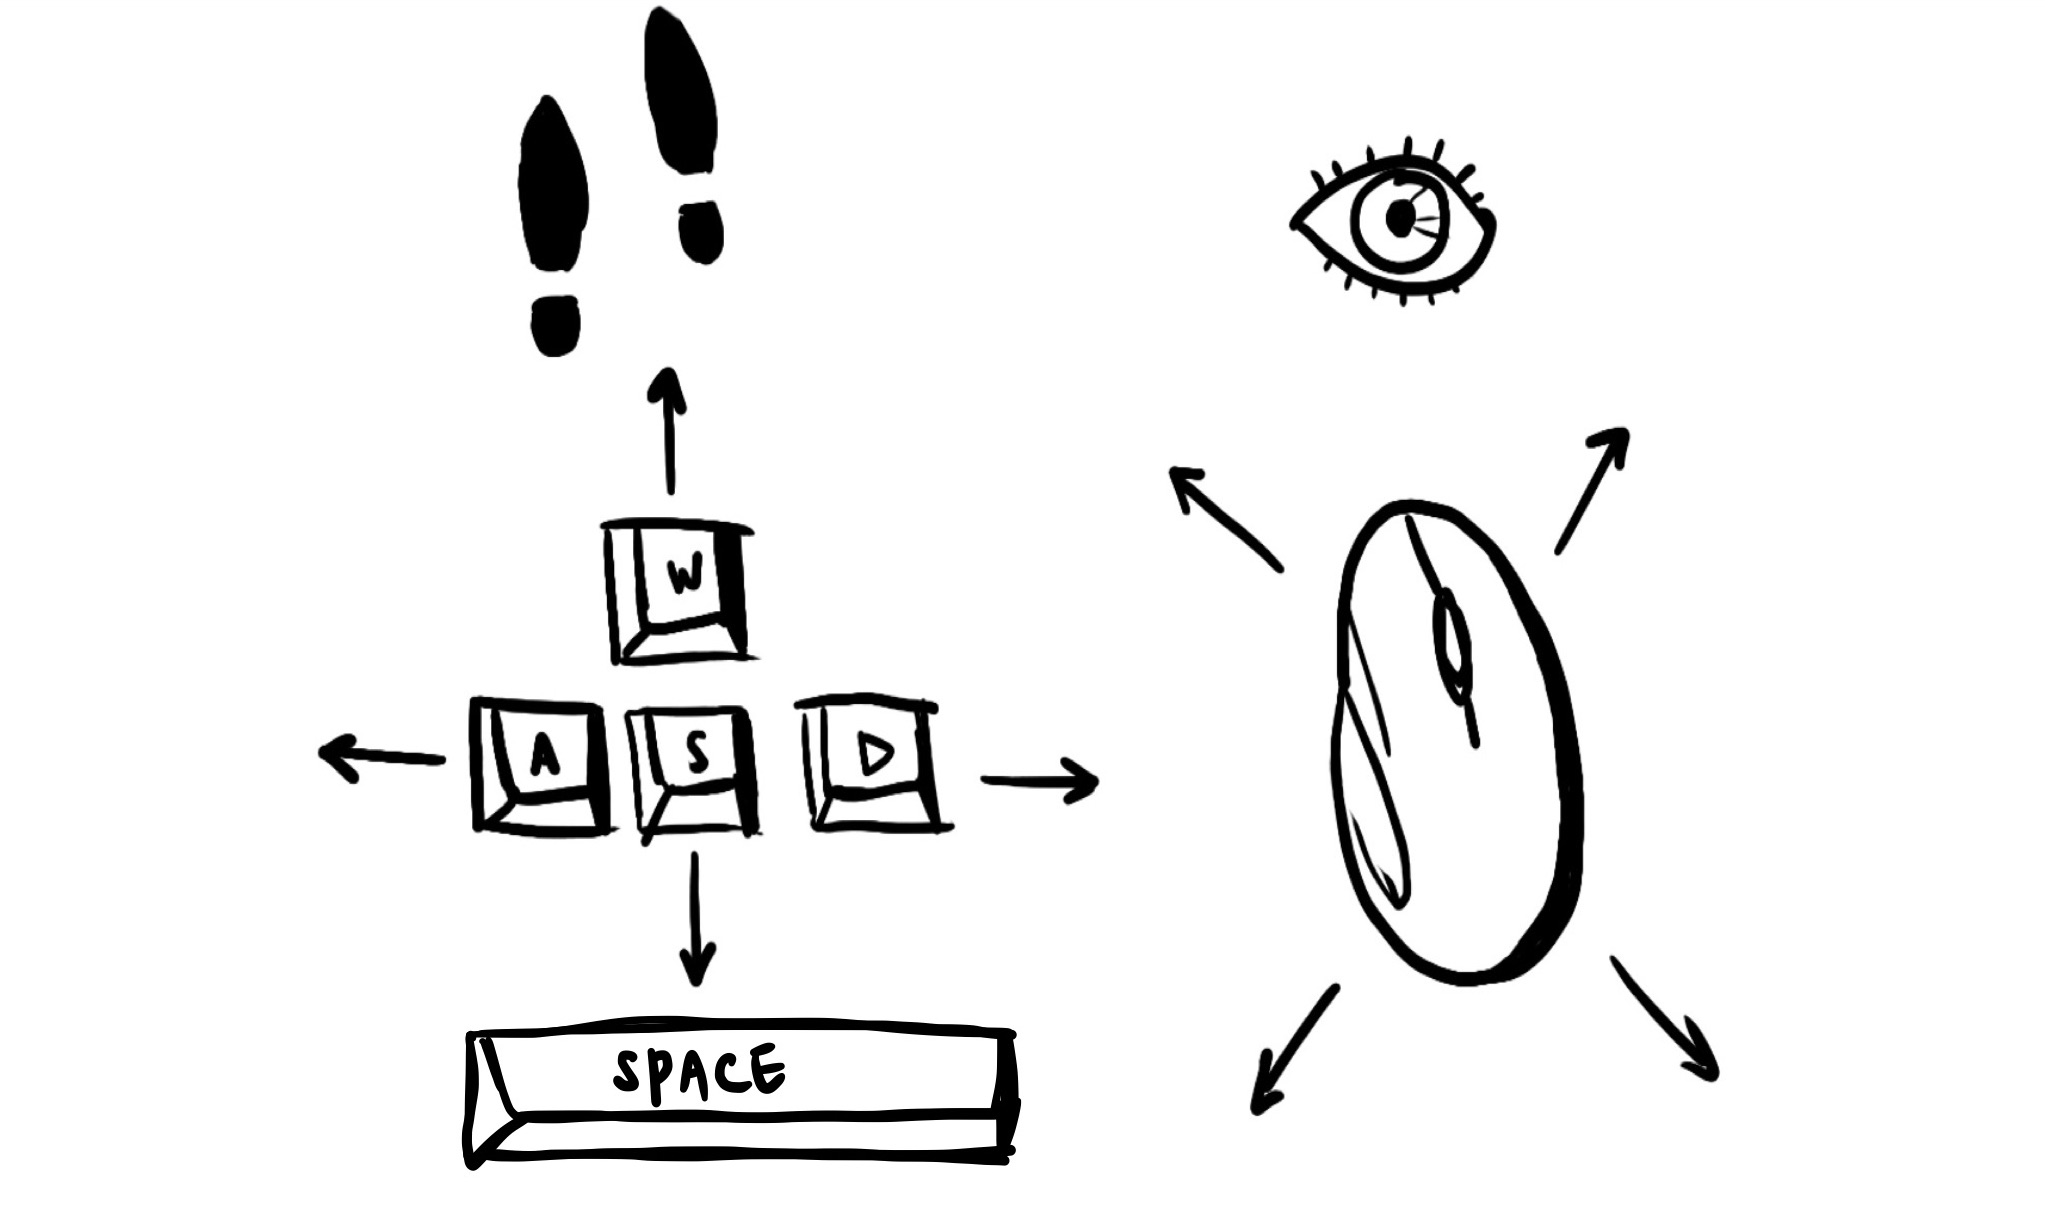 W
A S D
SPACE